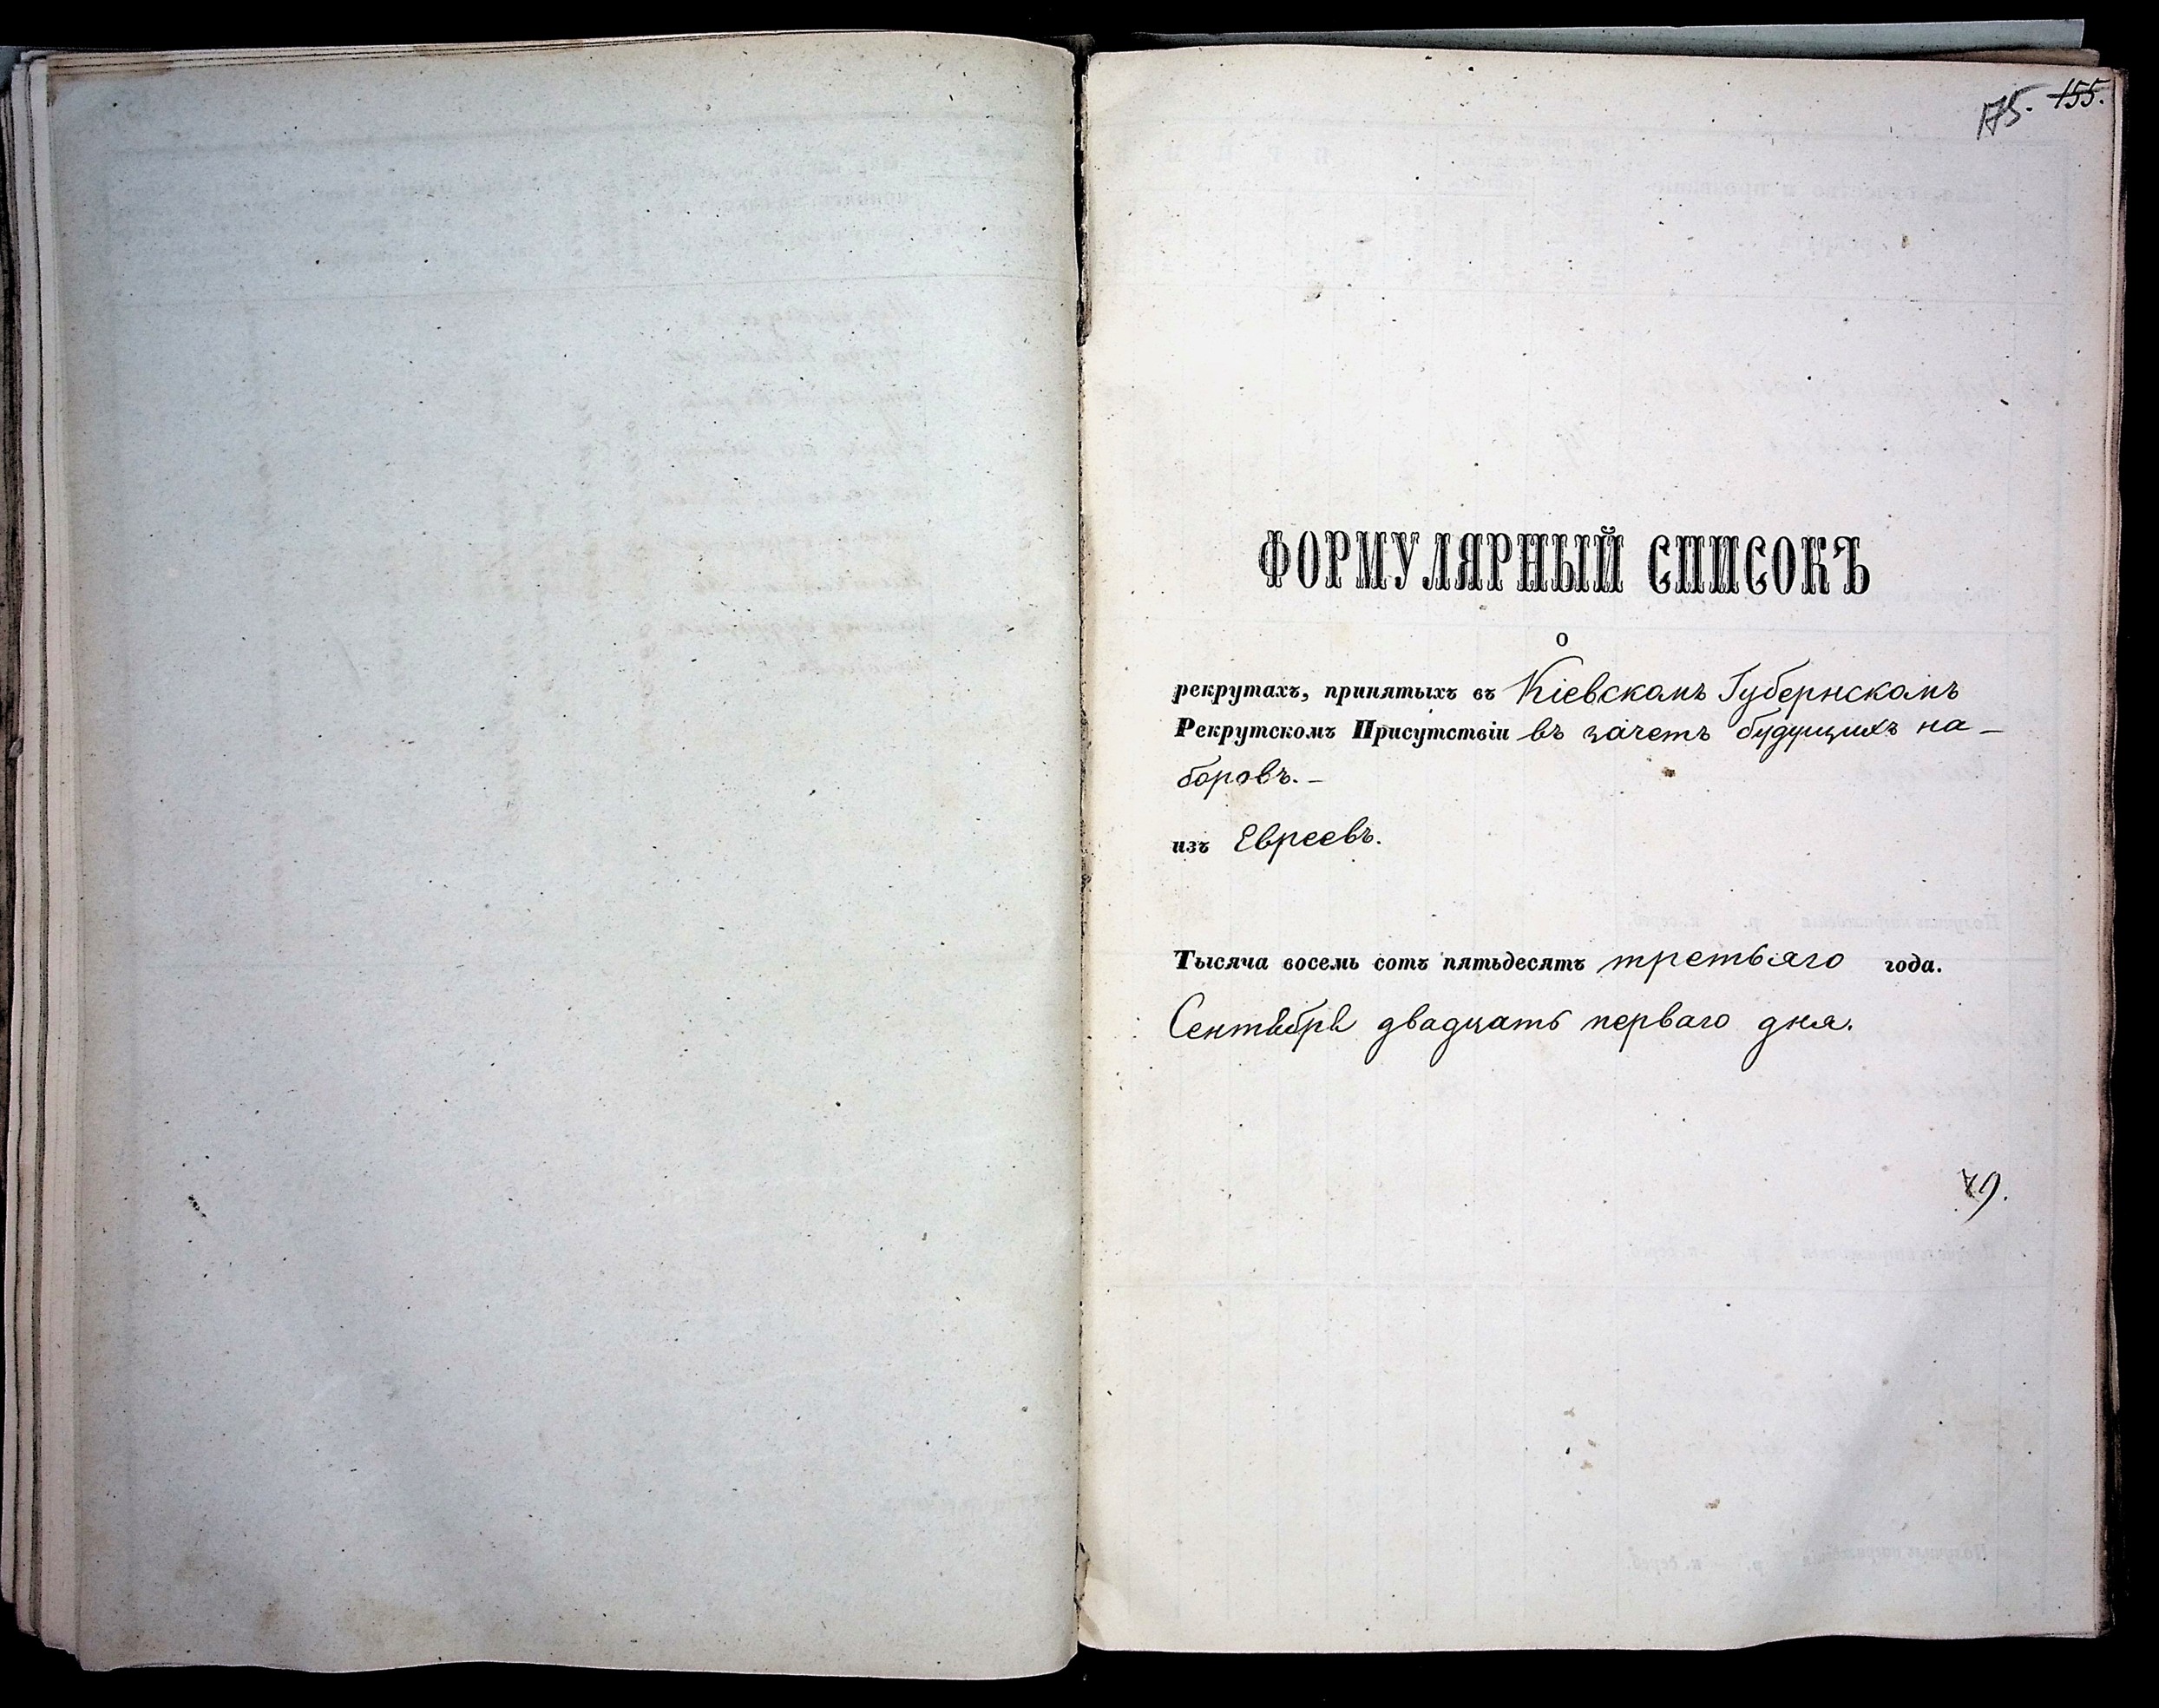 175. 155.
ФОРМУЛЯРНЫЙ СПИСОКЪ
о
рекрутахъ, принятыхъ въ Кіевскомъ Губернскомъ
Рекрутскомъ Присутствіи въ зачетъ будущихъ на-
боровъ. -
изъ Евреевъ.
Тысяча восемь сотъ пятьдесятъ третьяго года.
Сентября двадцать перваго дня.
79.